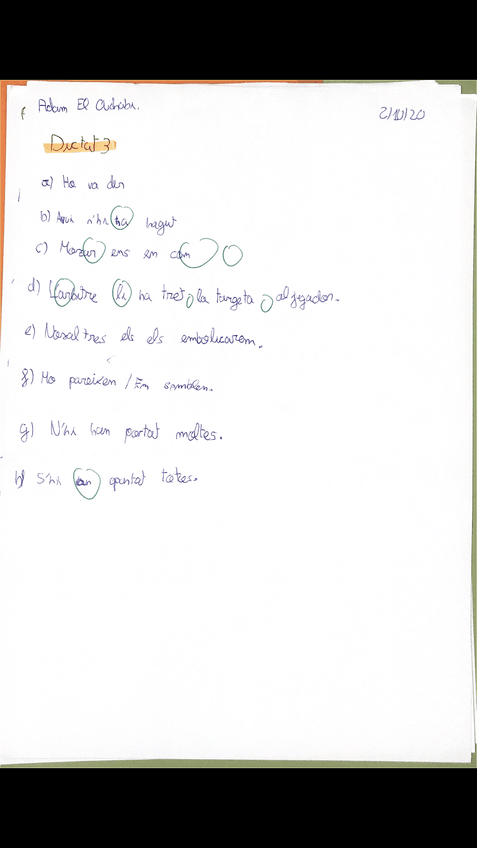 Adam El
2/10/20
Dictat 3
a) Ho va dir
b) n'hi ha hagut
c) ens em com
d) L'arbitre li ha tret la targeta al jugador.
e) Nosaltres els els embolicarem.
f) Ho pareixen / Em semblen.
g) N'hi han portat moltes.
h) S'hi han apuntat totes.